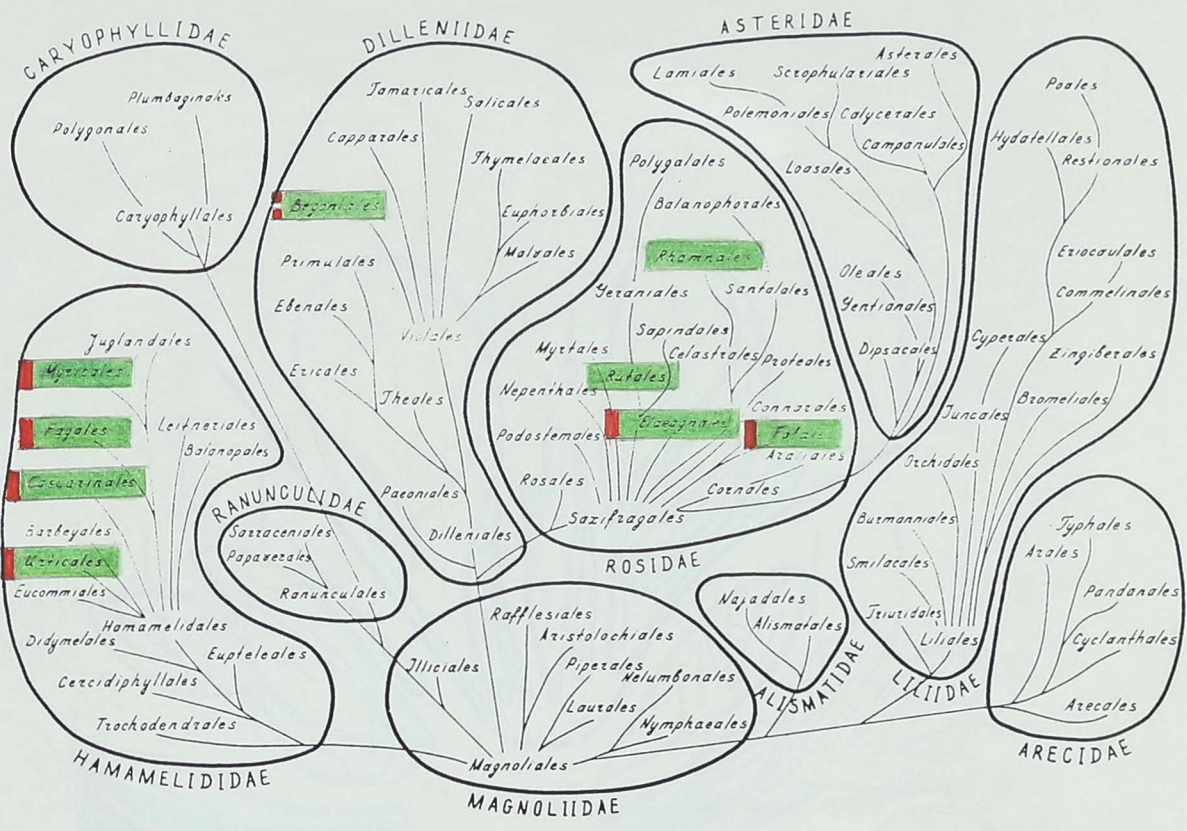 CARYOPHYLLIDAE
Plumbaginales
Polygonales
Caryophyllales
DILLENIIDAE
Tamaricales
Salicales
Capparales
Thymelaeales
Begoniales
Euphorbiales
Primulales
Malvales
Ebenales
Violales
Ericales
Theales
Paeoniales
Dilleniales
ASTERIDAE
Asterales
Lamiales
Scrophulariales
Polemoniales
Calycerales
Campanulales
Loasales
Oleales
Gentianales
Dipsacales
Polygalales
Balanophorales
Rhamnales
Geraniales
Santalales
Sapindales
Myrtales
Celastrales
Proteales
Rutales
Nepenthales
Connarales
Elaeagnales
Podostemales
Araliales
Rosales
Cornales
Saxifragales
ROSIDAE
Poales
Hydatellales
Restionales
Eriocaulales
Commelinales
Cyperales
Zingiberales
Bromeliales
Juncales
Orchidales
Burmanniales
Smilacales
Triuridales
Liliales
LILIIDAE
Juglandales
Myricales
Fagales
Leitneriales
Balanopales
Casuarinales
Barbeyales
Urticales
Eucommiales
Hamamelidales
Didymelales
Eupteleales
Cercidiphyllales
Trochodendrales
HAMAMELIDIDAE
RANUNCULIDAE
Sarraceniales
Papaverales
Ranunculales
Rafflesiales
Aristolochiales
Illiciales
Piperales
Nelumbonales
Laurales
Nymphaeales
Magnoliales
MAGNOLIIDAE
Najadales
Alismatales
ALISMATIDAE
Typhales
Arales
Pandanales
Cyclanthales
Arecales
ARECIDAE